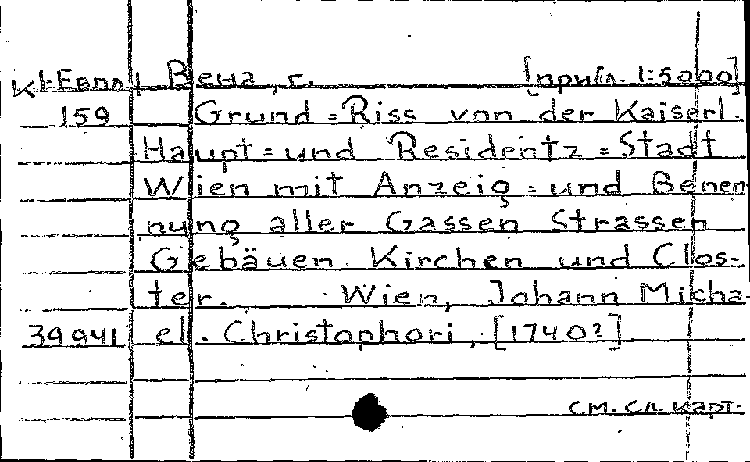 К1-Евпл Вена, г. [прибл. 1:5000]
159 Grund=Riss von der Kaiserl.
Haupt=und Residentz=Stadt
Wien mit Anzeig=und Benen
nung aller Gassen Strassen
Gebäuen Kirchen und Clos-
ter. Wien, Johann Micha-
39941 el. Christophori, [1740?]
см. сл. карт.